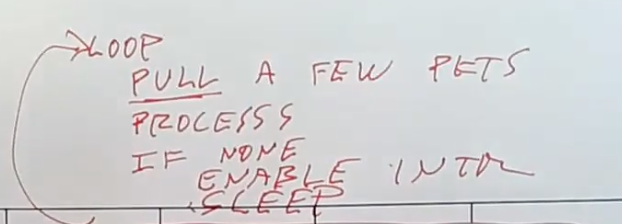 LOOP
PULL A FEW PKTS
PROCESSS
IF NONE
ENABLE INTR
SLEEP